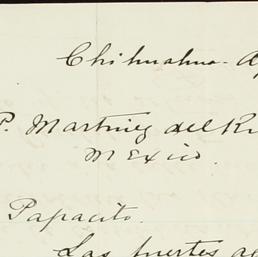 Chihuahua - A
P. Martinez del R
Mexico.
Papacito.
Las fuertes